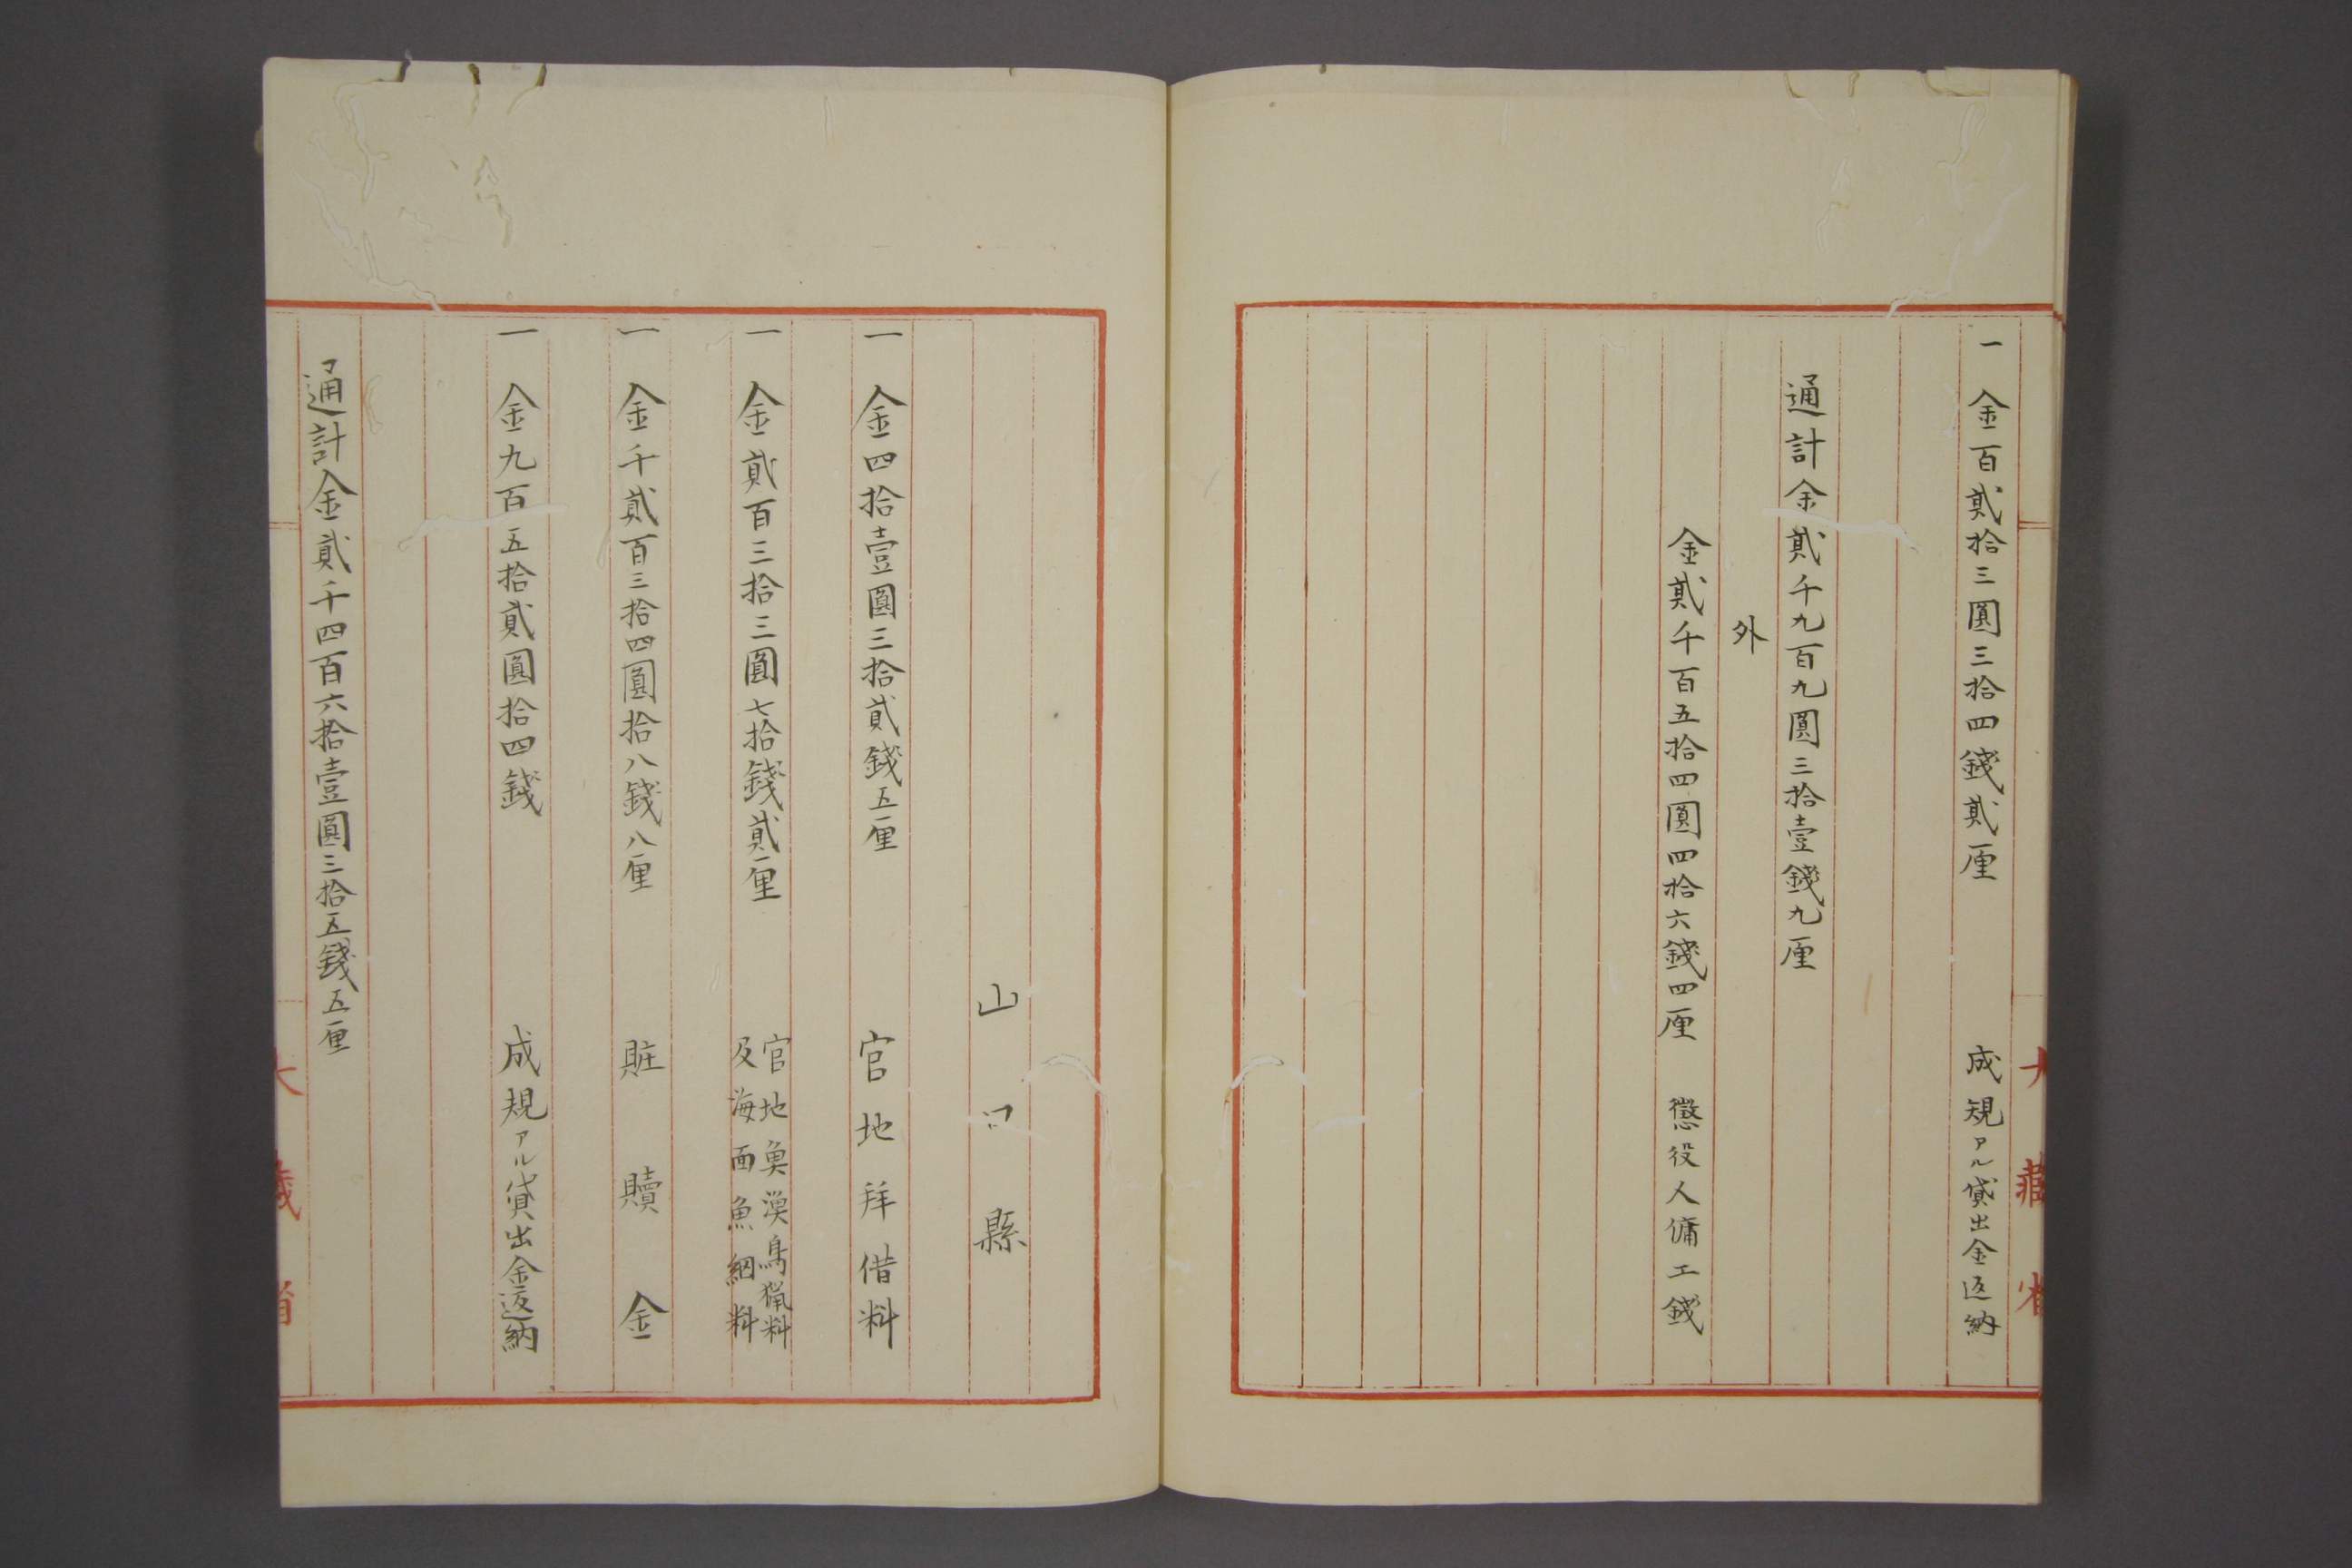 大藏省
一 金百貳拾三圓三拾四錢貳厘 成規アル貸出金返納
通計金貳千九百九圓三拾壹錢九厘
外
金貳千百五拾四圓四拾六錢四厘 懲役人傭工錢
山口縣
一 金四拾壹圓三拾貳錢五厘 官地拜借料
一 金貳百三拾三圓七拾錢貳厘 官地魚漁鳥猟料
及海面魚網料
一 金千貳百三拾四圓拾八錢八厘 賍贖金
一 金九百五拾貳圓拾四錢 成規アル貸出金返納
通計金貳千四百六拾壹圓三拾五錢五厘
大藏省